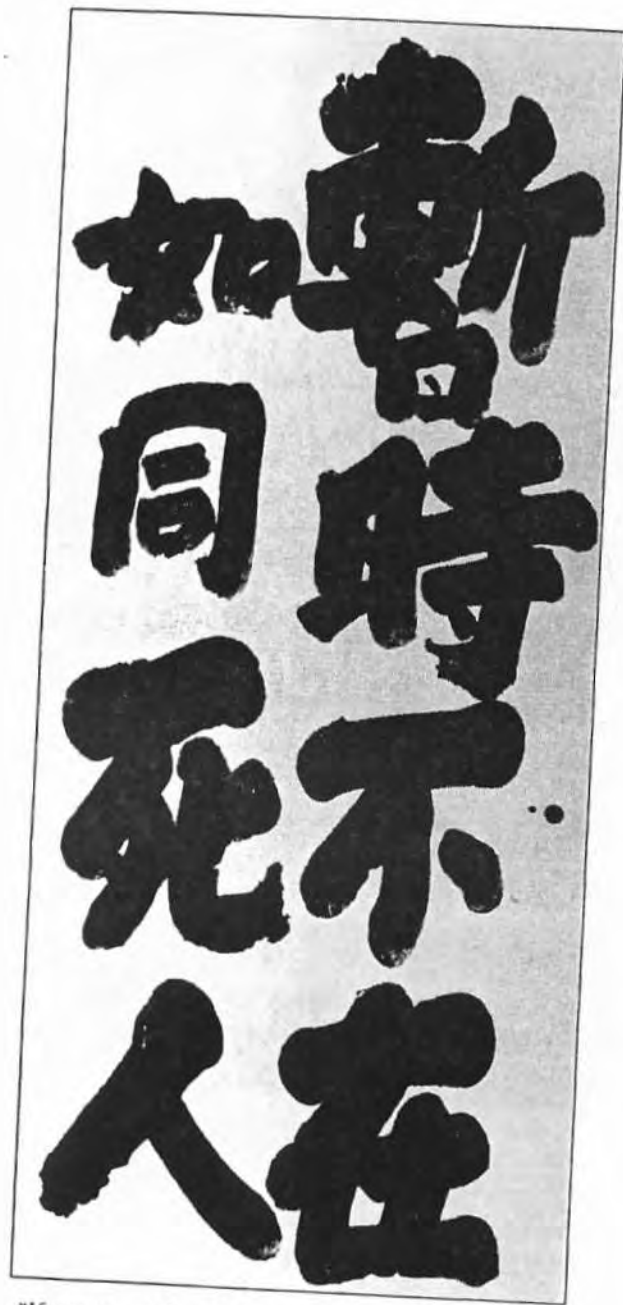 暫時不在
如同死人